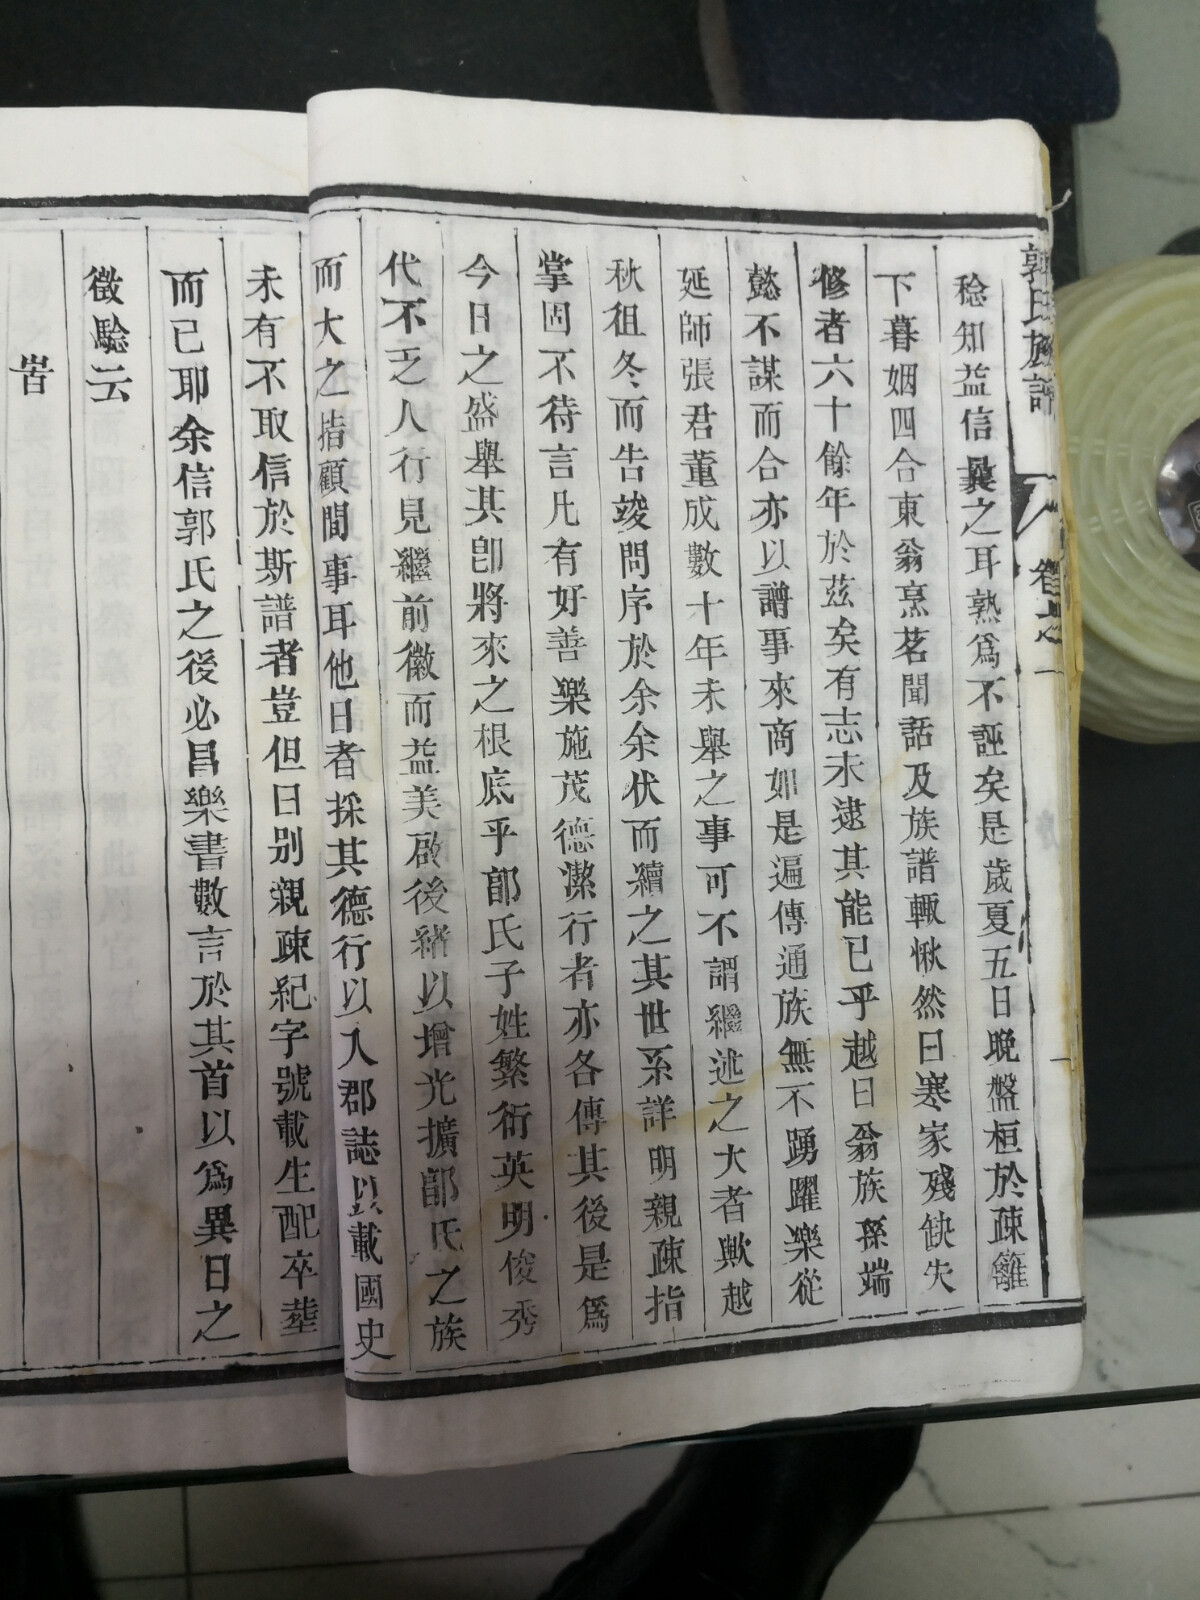 郭氏族譜 卷之一
稔知益信曩之耳熟爲不誣矣是歲夏五日晚盤桓於疎籬
下暮姻四合東翁烹茗聞話及族譜輙愀然曰寒家殘缺失
修者六十餘年於茲矣有志未逮其能已乎越日翁族孫端
懿不謀而合亦以譜事來商如是遍傳通族無不踴躍樂從
延師張君董成數十年未舉之事可不謂繼述之大者歟越
秋徂冬而告竣問序於余余伏而續之其世系詳明親疎指
掌固不待言凡有好善樂施茂德潔行者亦各傳其後是爲
今日之盛舉其卽將來之根底乎郭氏子姓繁衍英明俊秀
代不乏人行見繼前徽而益美啟後緒以增光擴郭氏之族
而大之指顧間事耳他日者採其德行以入郡誌以載國史
未有不取信於斯譜者豈但曰別親疎紀字號載生配卒塟
而已耶余信郭氏之後必昌樂書數言於其首以爲異日之
徵驗云
旹